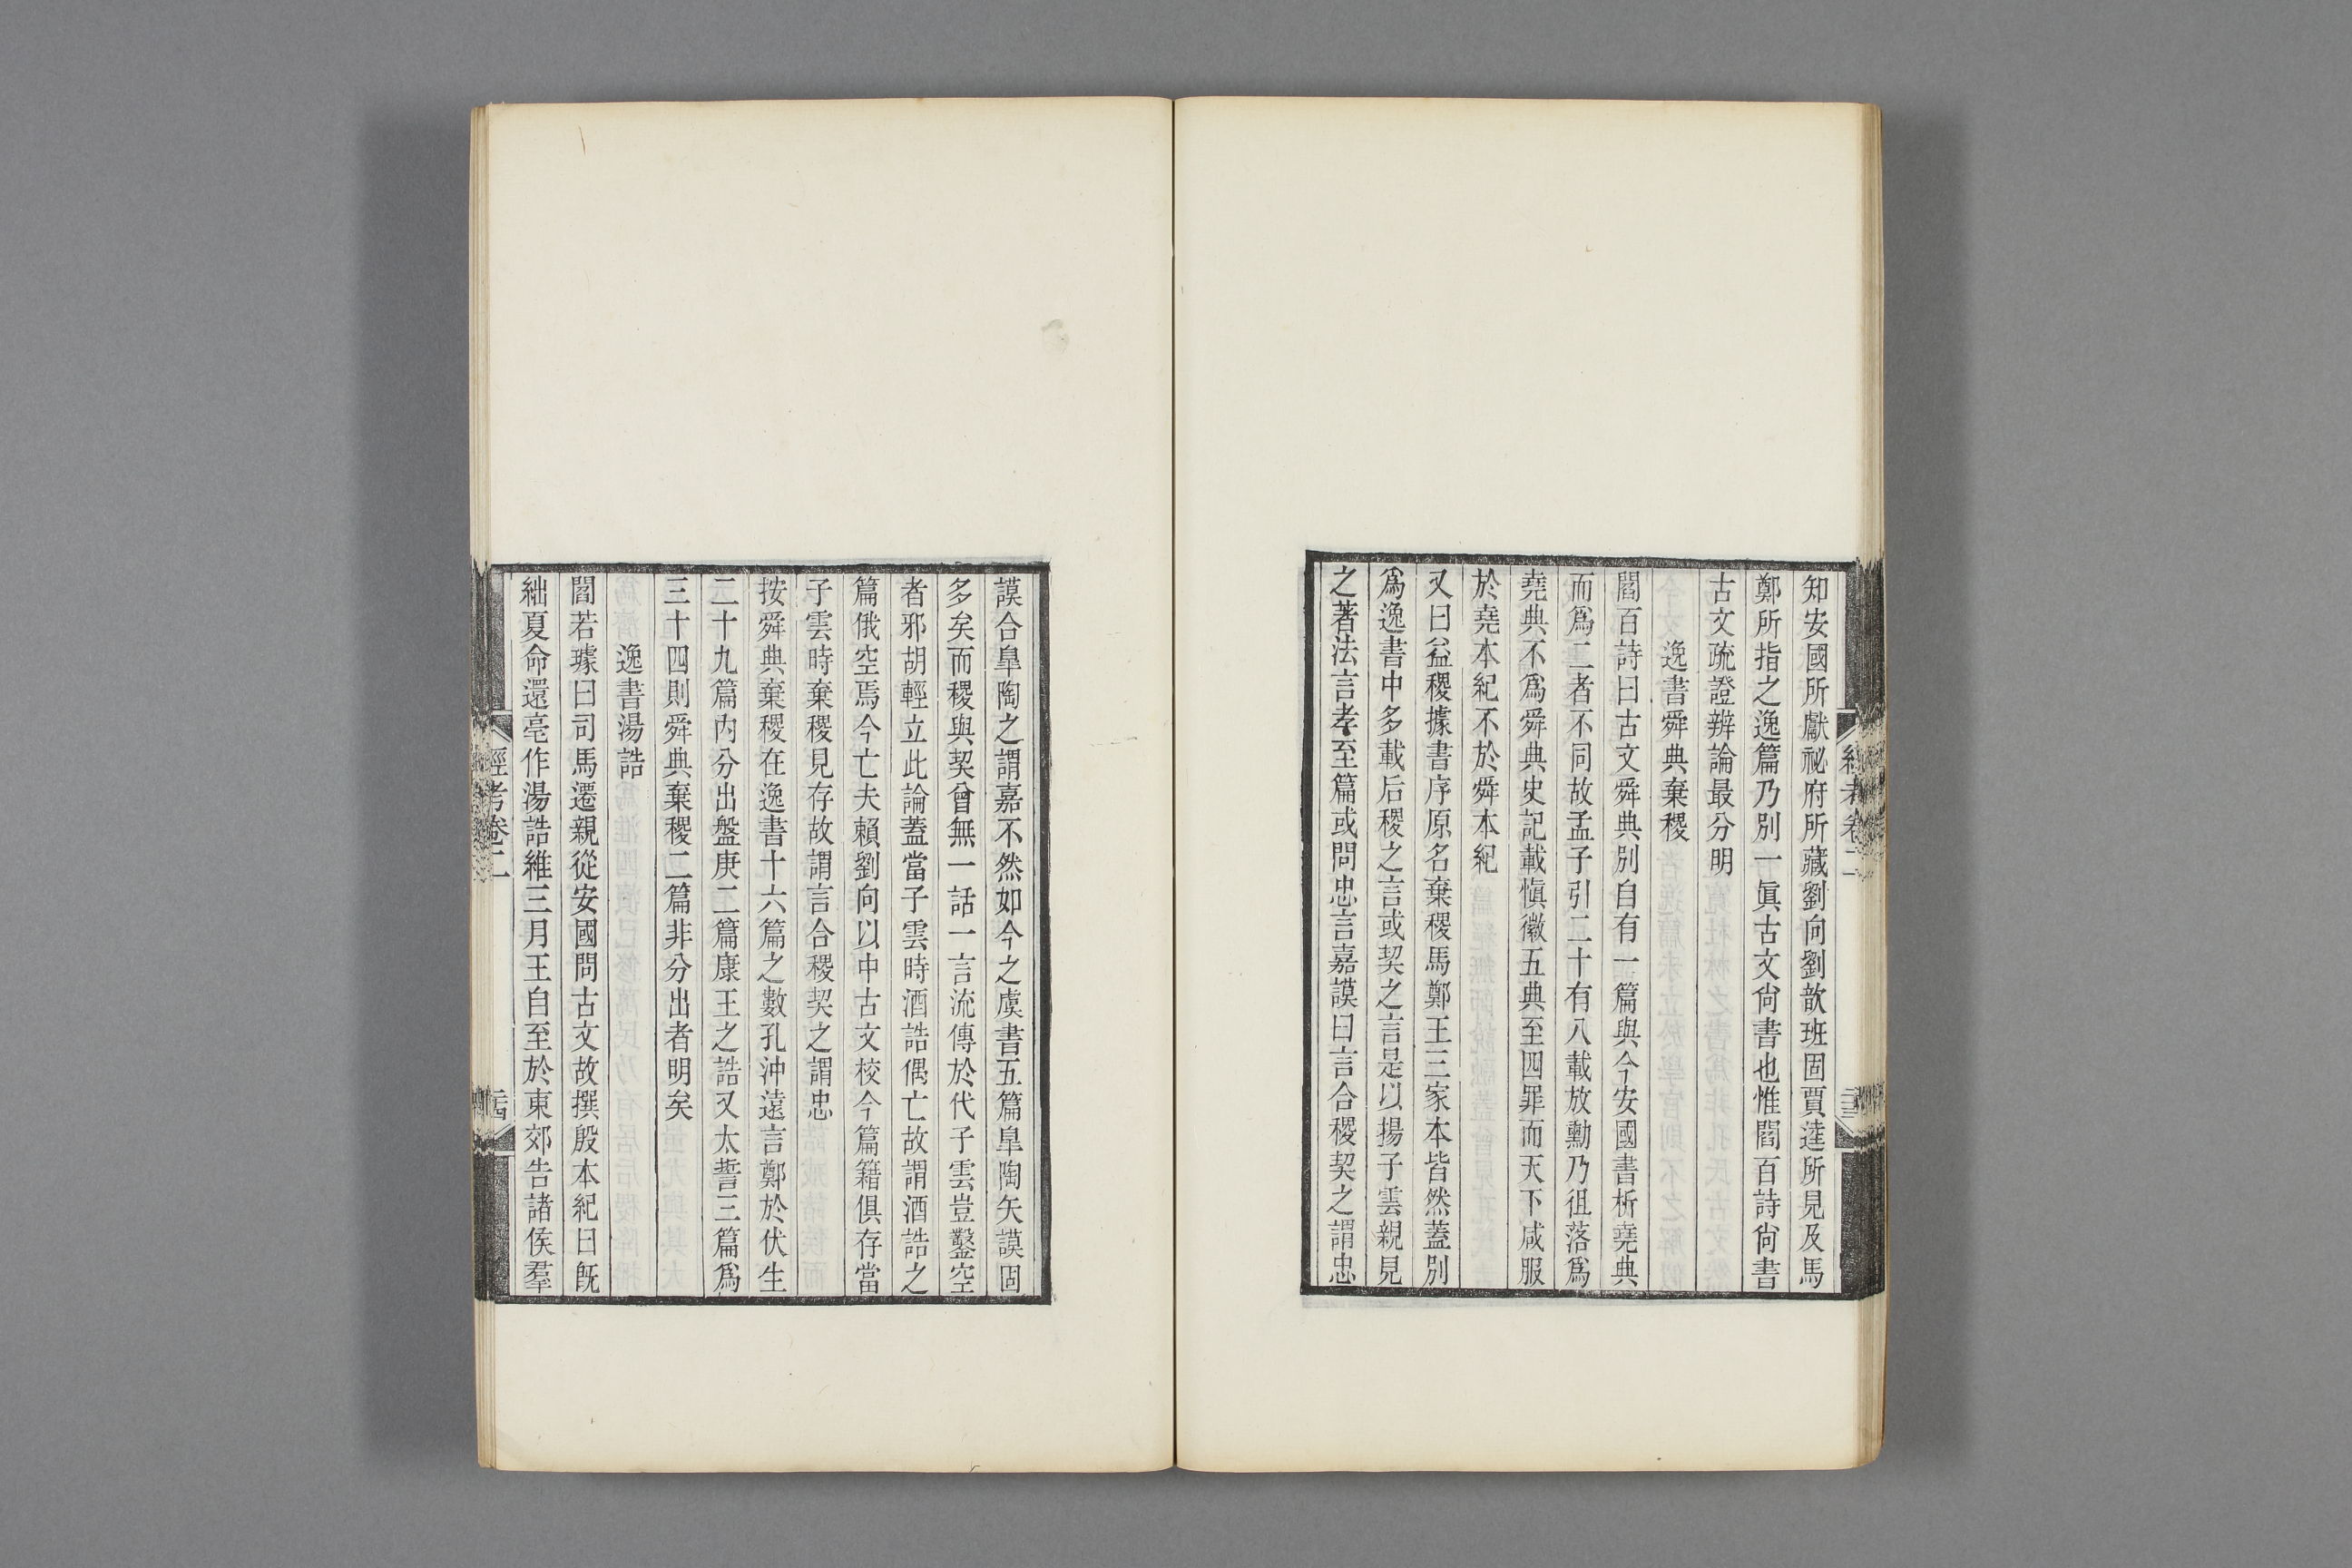 知安國所獻祕府所藏劉向劉歆班固賈逵所見及馬
鄭所指之逸篇乃別一眞古文尙書也惟閻百詩尙書
古文疏證辨論最分明
逸書舜典棄稷
閻百詩曰古文舜典別自有一篇與今安國書析堯典
而爲二者不同故孟子引二十有八載放勳乃徂落爲
堯典不爲舜典史記載愼徽五典至四罪而天下咸服
於堯本紀不於舜本紀
又曰益稷據書序原名棄稷馬鄭王三家本皆然蓋別
爲逸書中多載后稷之言或契之言是以揚子雲親見
之著法言孝至篇或問忠言嘉謨曰言合稷契之謂忠
謨合臯陶之謂嘉不然如今之虞書五篇臯陶矢謨固
多矣而稷與契曾無一話一言流傳於代子雲豈鑿空
者邪胡輕立此論蓋當子雲時酒誥偶亡故謂酒誥之
篇俄空焉今亡夫賴劉向以中古文校今篇籍俱存當
子雲時棄稷見存故謂言合稷契之謂忠
按舜典棄稷在逸書十六篇之數孔沖遠言鄭於伏生
二十九篇內分出盤庚二篇康王之誥又太誓三篇爲
三十四則舜典棄稷二篇非分出者明矣
逸書湯誥
閻若璩曰司馬遷親從安國問古文故撰殷本紀曰旣
絀夏命還亳作湯誥維三月王自至於東郊告諸侯羣
經考卷二